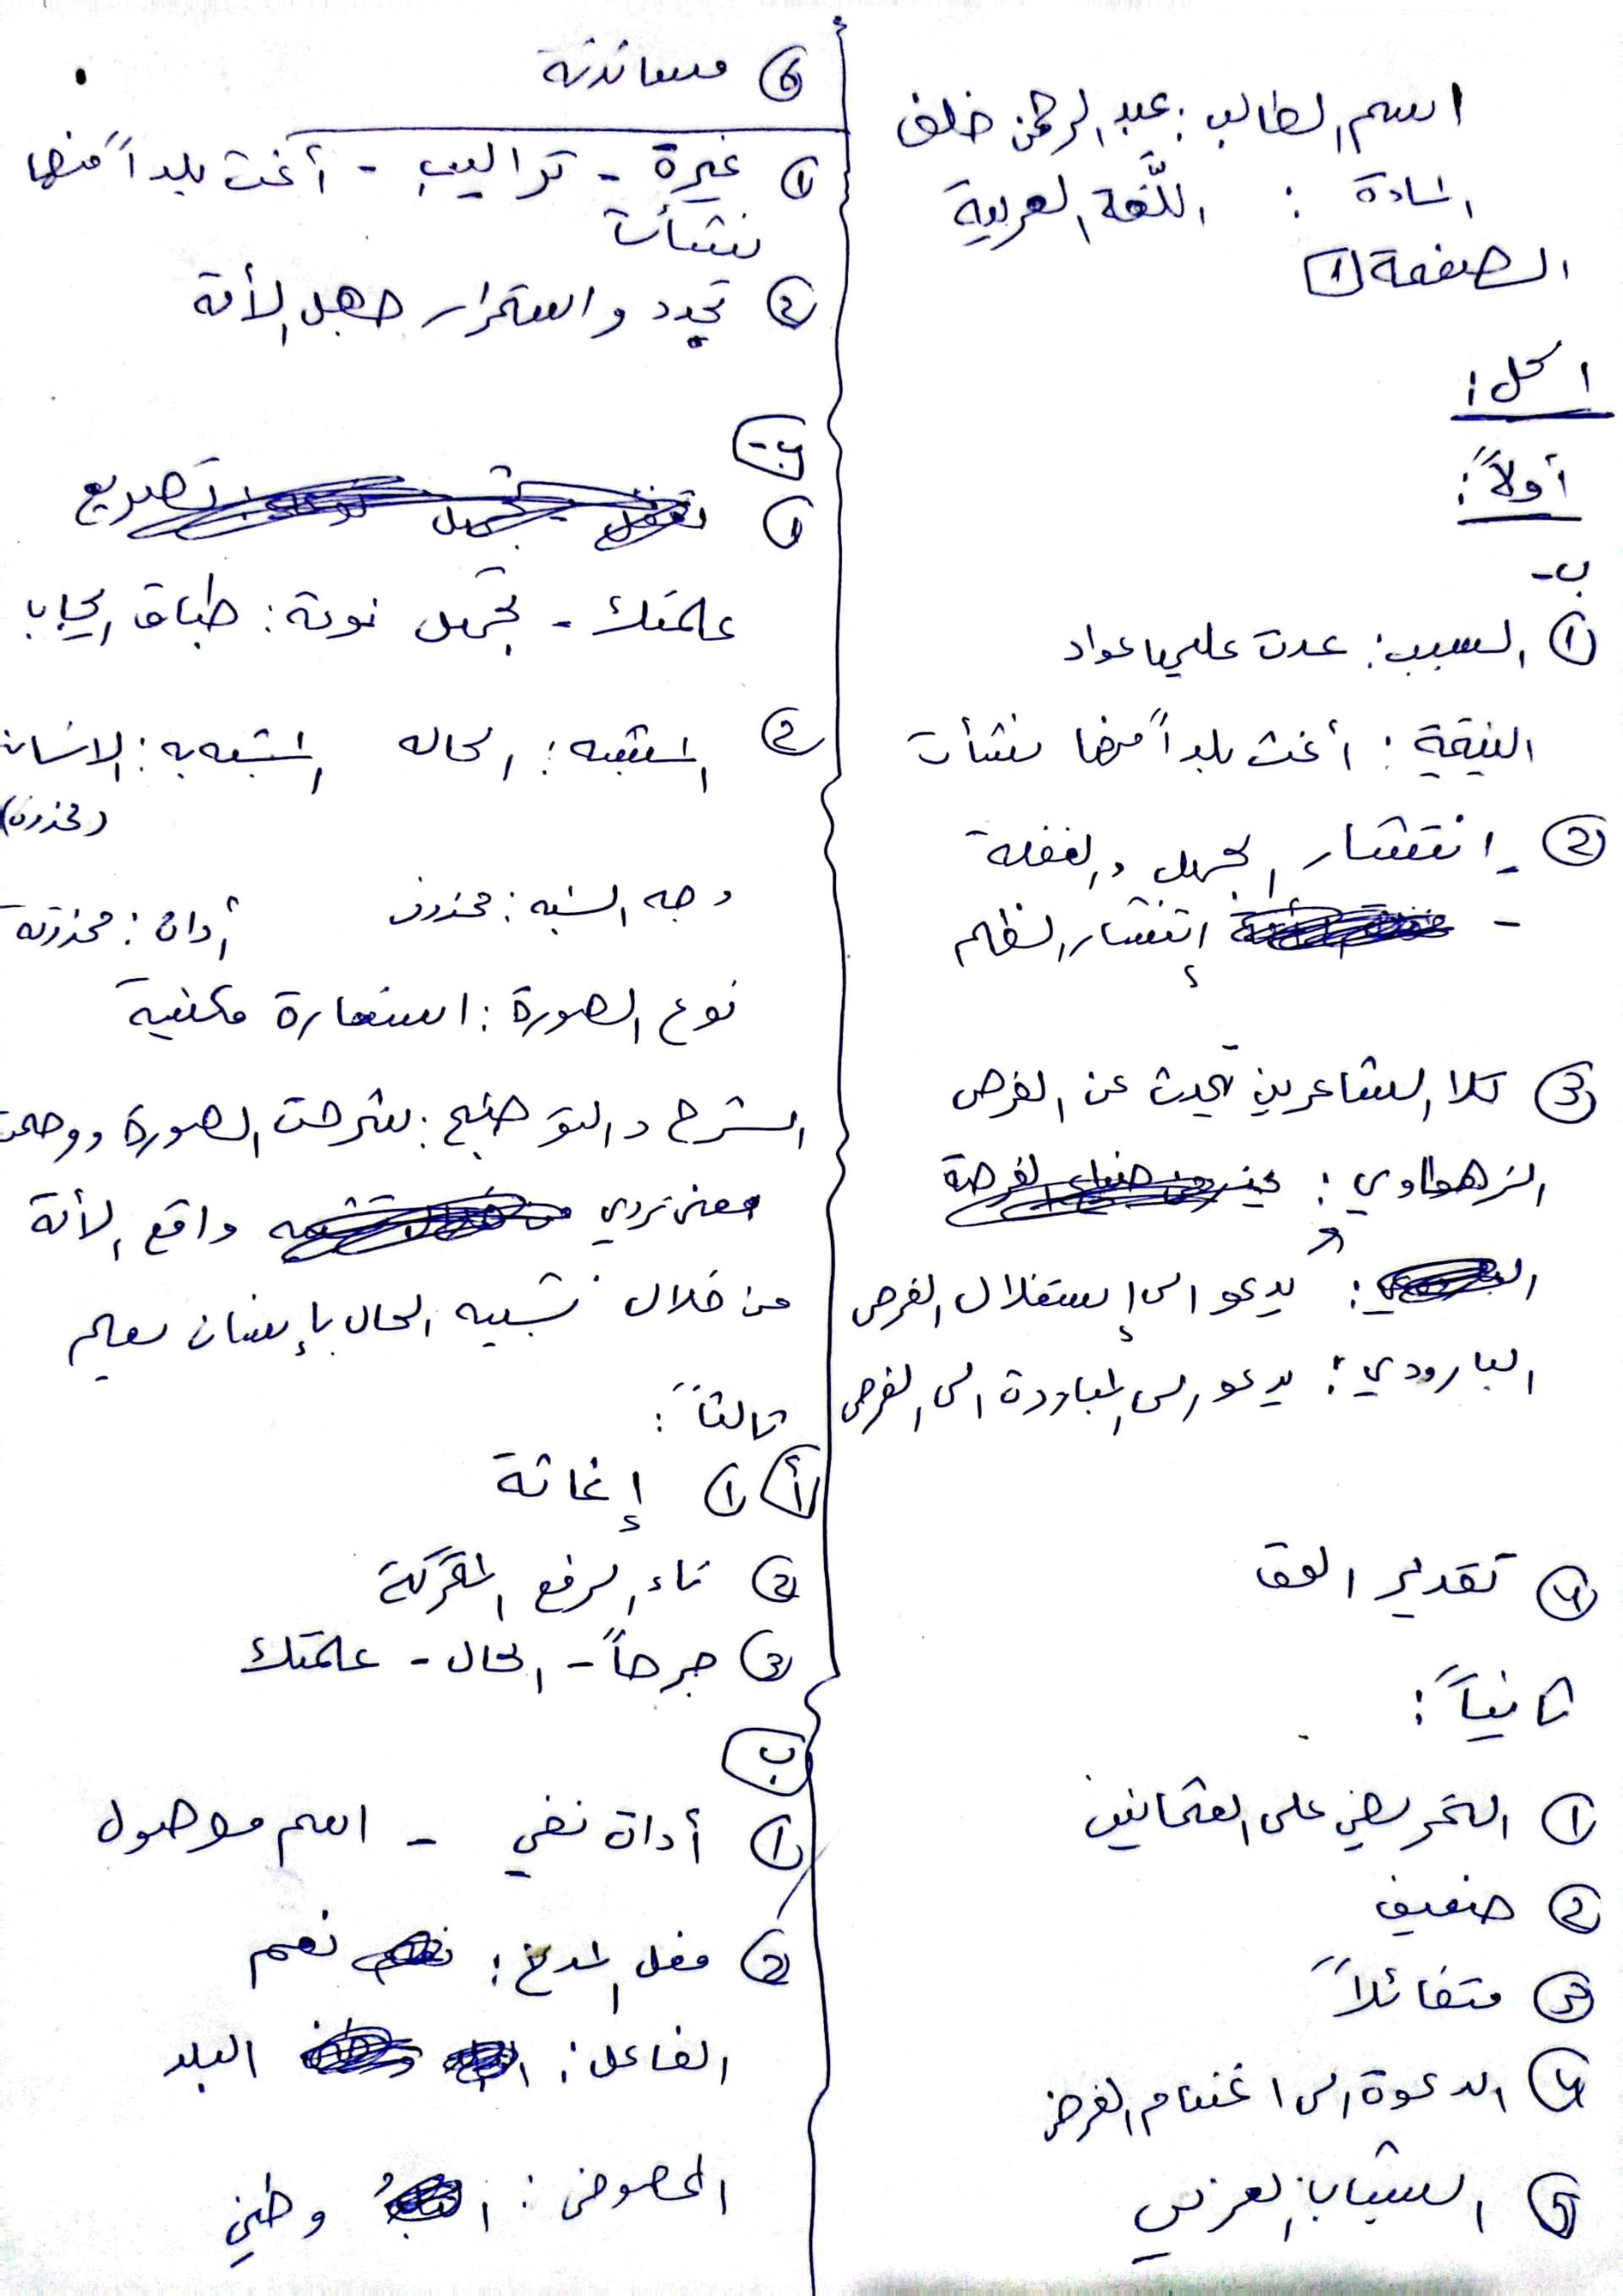 اسم الطالب: عبد الرحمن خلف
المادة : اللّغة العربية
الصفحة ①
الحل:
أولاً:
ب-
① السبب: عدت عليها عواد
النتيجة: أغث بلداً منها نشأت
② - انتشار الجهل والغفلة
- إنتشار الظلم
③ كلا الشاعرين تحدث عن الفرص
الزهاوي:
يدعو الى إستغلال الفرص
البارودي: يدعو الى المبادرة الى الفرص
④ تقدير
ثانياً:
① التحريض على العثمانيين
② ضعيف
③ متفائلاً
④ الدعوة الى اغتنام الفرص
⑤ الشباب العربي
⑥ مساندته
① غيرة - تراكيب - أغث بلداً منها
نشأت
② تجدد واستمرار جهل الأمة
ب-
① تصريع
علمتك - تجهل نوعه: طباق إيجاب
② المشبه: الحال المشبه به: الانسان
(محذوف)
وجه الشبه: محذوف أداة: محذوفة
نوع الصورة: استعارة مكنية
الشرح والتوضيح: شرحت الصورة ووضحت
معنى تردي واقع الأمة
من خلال تشبيه الحال بإنسان يعلم
ثالثاً:
أ ① إغاثة
② تاء الرفع المتحركة
③ جرحاً - الحال - علمتك
ب
① أداة نفي - اسم موصول
② فعل المدح: نعم
الفاعل: البلد
المخصوص: وطني